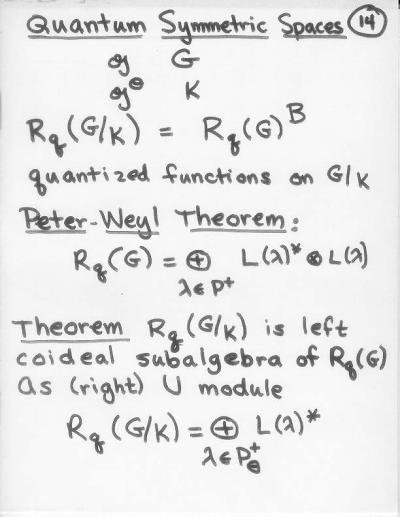 Quantum Symmetric Spaces 14
𝔤 G
𝔤^θ K
R_q(G/K) = R_q(G)^B
quantized functions on G/K
Peter-Weyl Theorem:
R_q(G) = ⊕ L(λ)* ⊗ L(λ)
λ ∈ P⁺
Theorem R_q(G/K) is left
coideal subalgebra of R_q(G)
As (right) U module
R_q(G/K) = ⊕ L(λ)*
λ ∈ P_θ^+